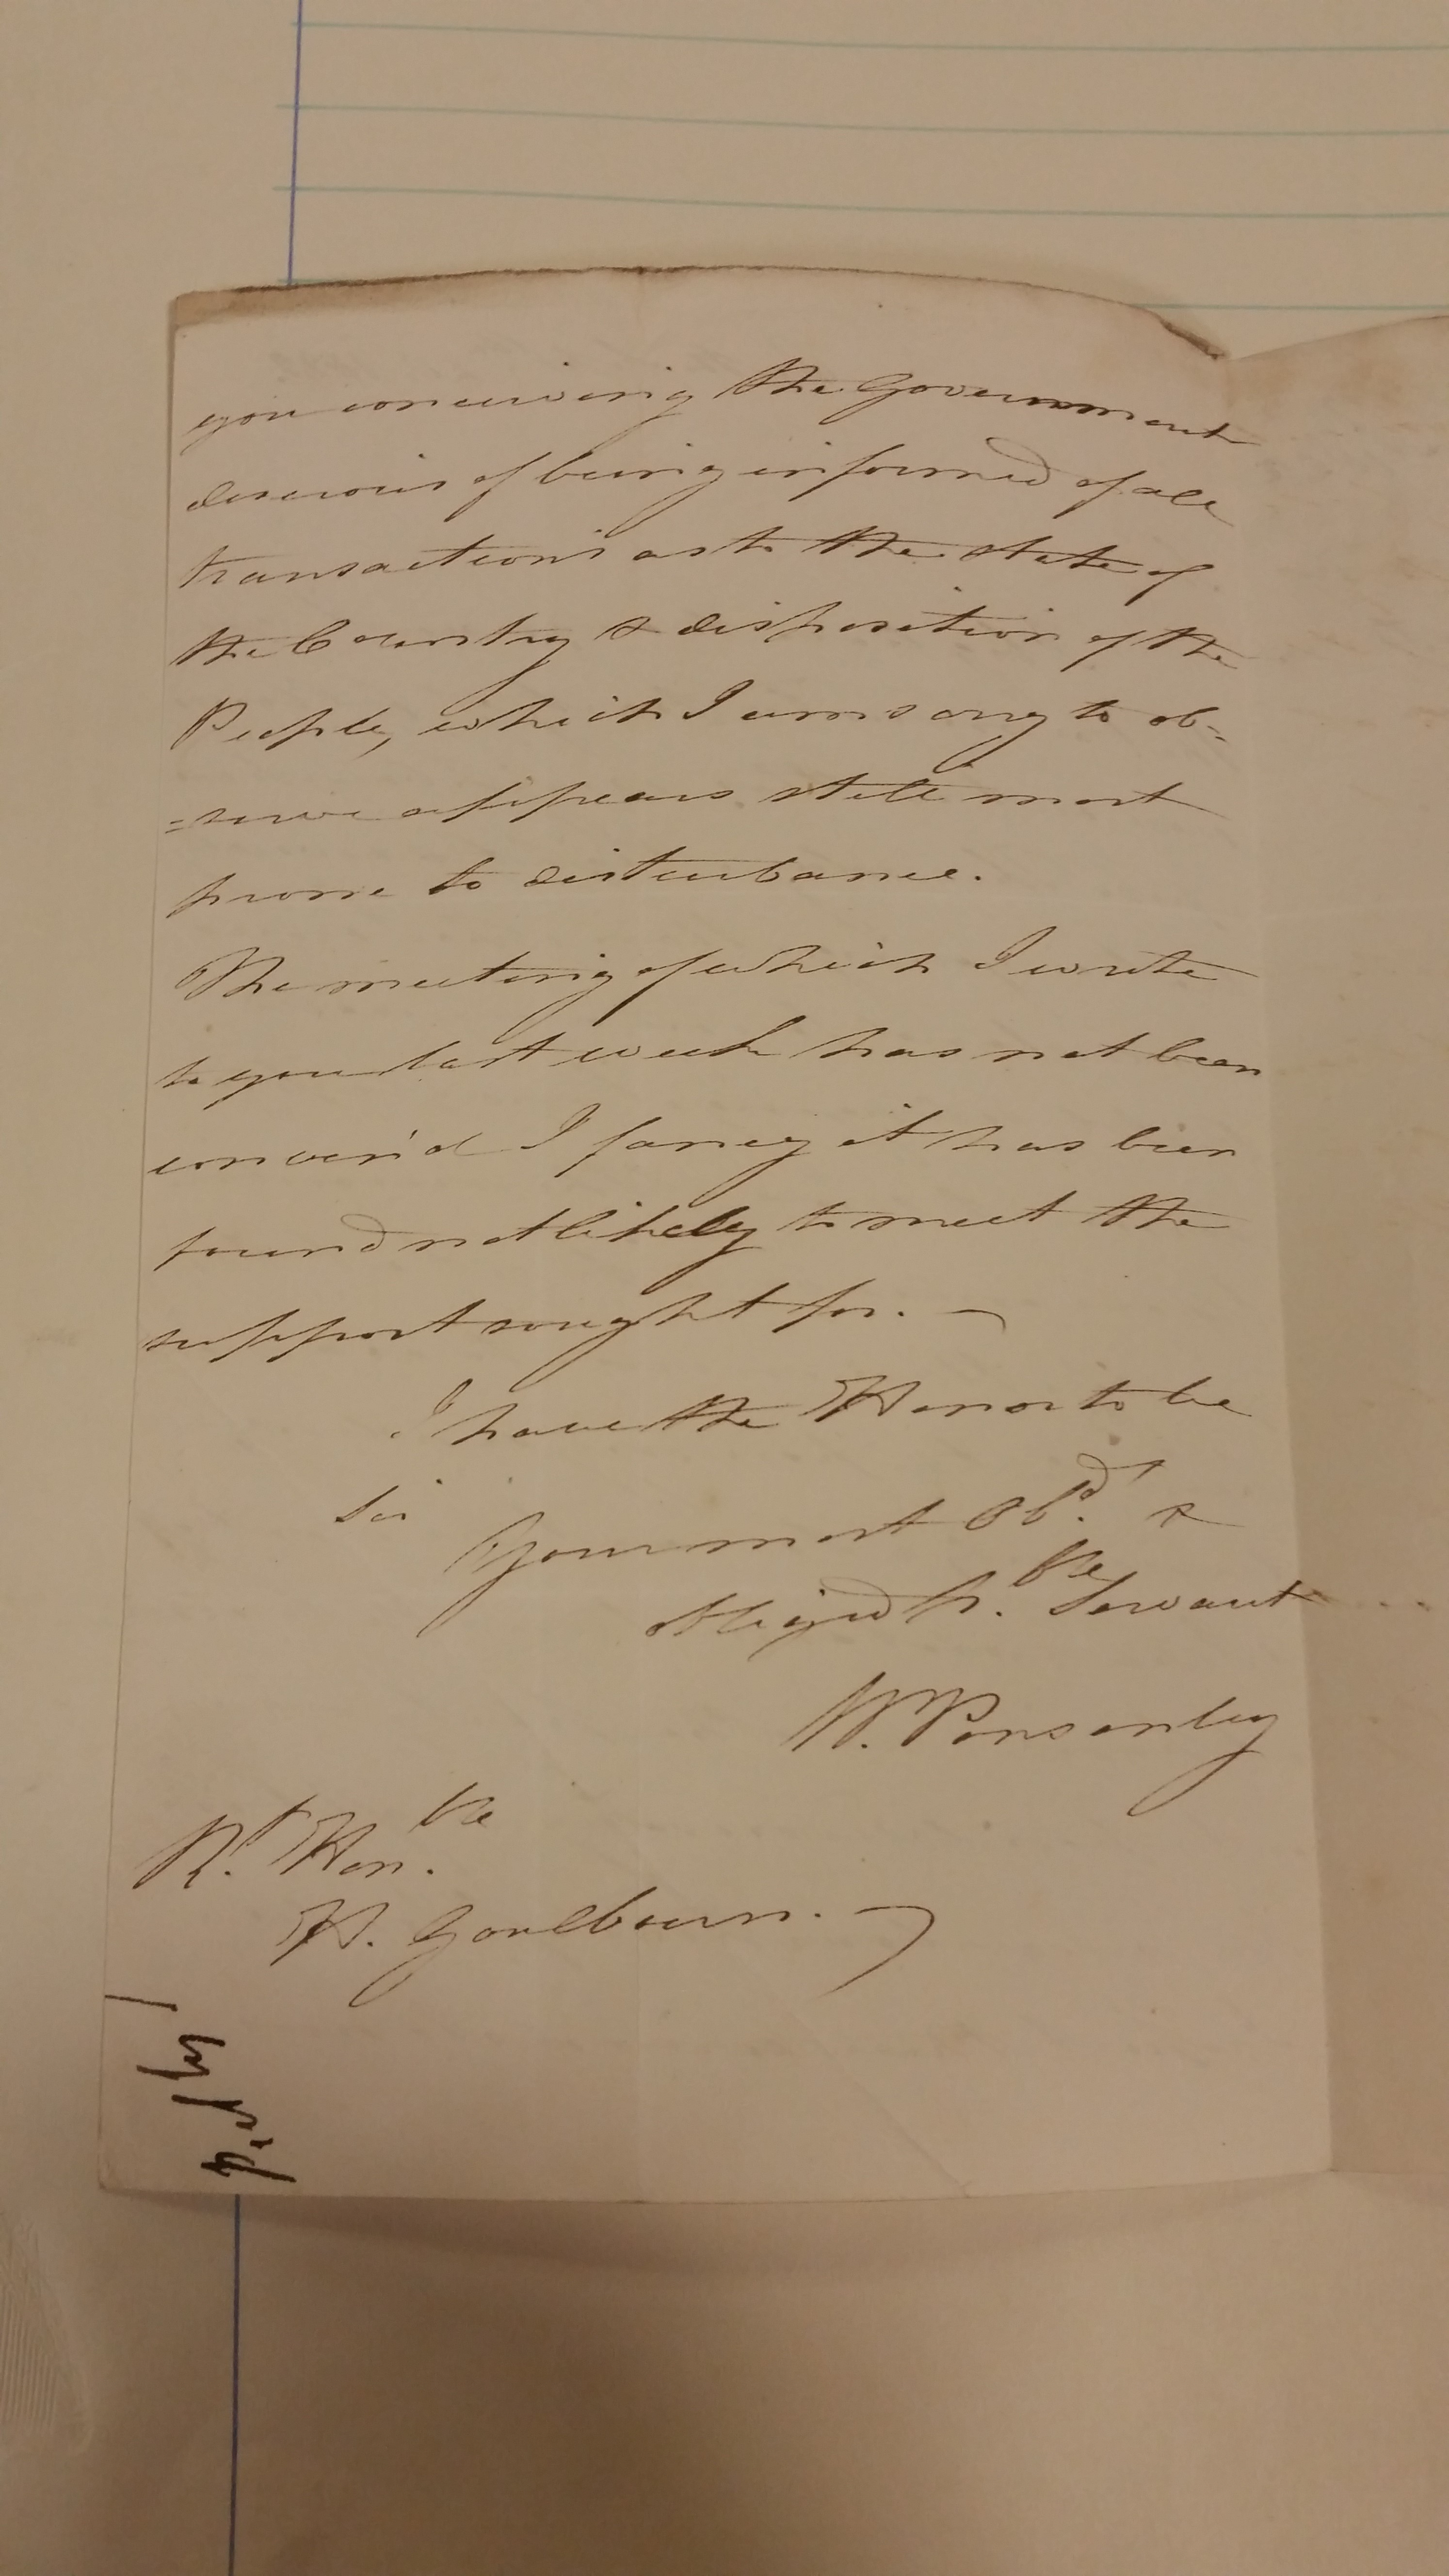 you conceiving the Government
desirous of being informed of all
transactions as to the state of
the Country & disposition of the
People, which I am sorry to ob-
=serve appears still most
prone to disturbance.
The meeting of which I wrote
to you last week has not been
conven'd I fancy it has been
found not likely to meet the
support sought for. —
I have the Honor to be
Sir
Your most Obdt. &
obliged h.ble Servant
W. Ponsonby
Rt. Hon.ble
H. Goulburn. —